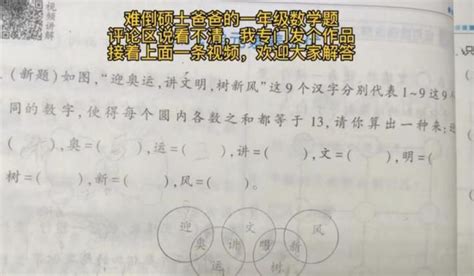 难倒硕士爸爸的一年级数学题
评论区说看不清，我专门发个作品
接着上面一条视频，欢迎大家解答
视频讲解
(新题)如图，“迎奥运，讲文明，树新风”这9个汉字分别代表1~9这9
同的数字，使得每个圆内各数之和都等于13，请你算出一种来：迎
( )，奥=( )，运=( )，讲=( )，文=( )，明=(
树=( )，新=( )，风=( )。
迎 文 风
奥 讲 明 新
运 树